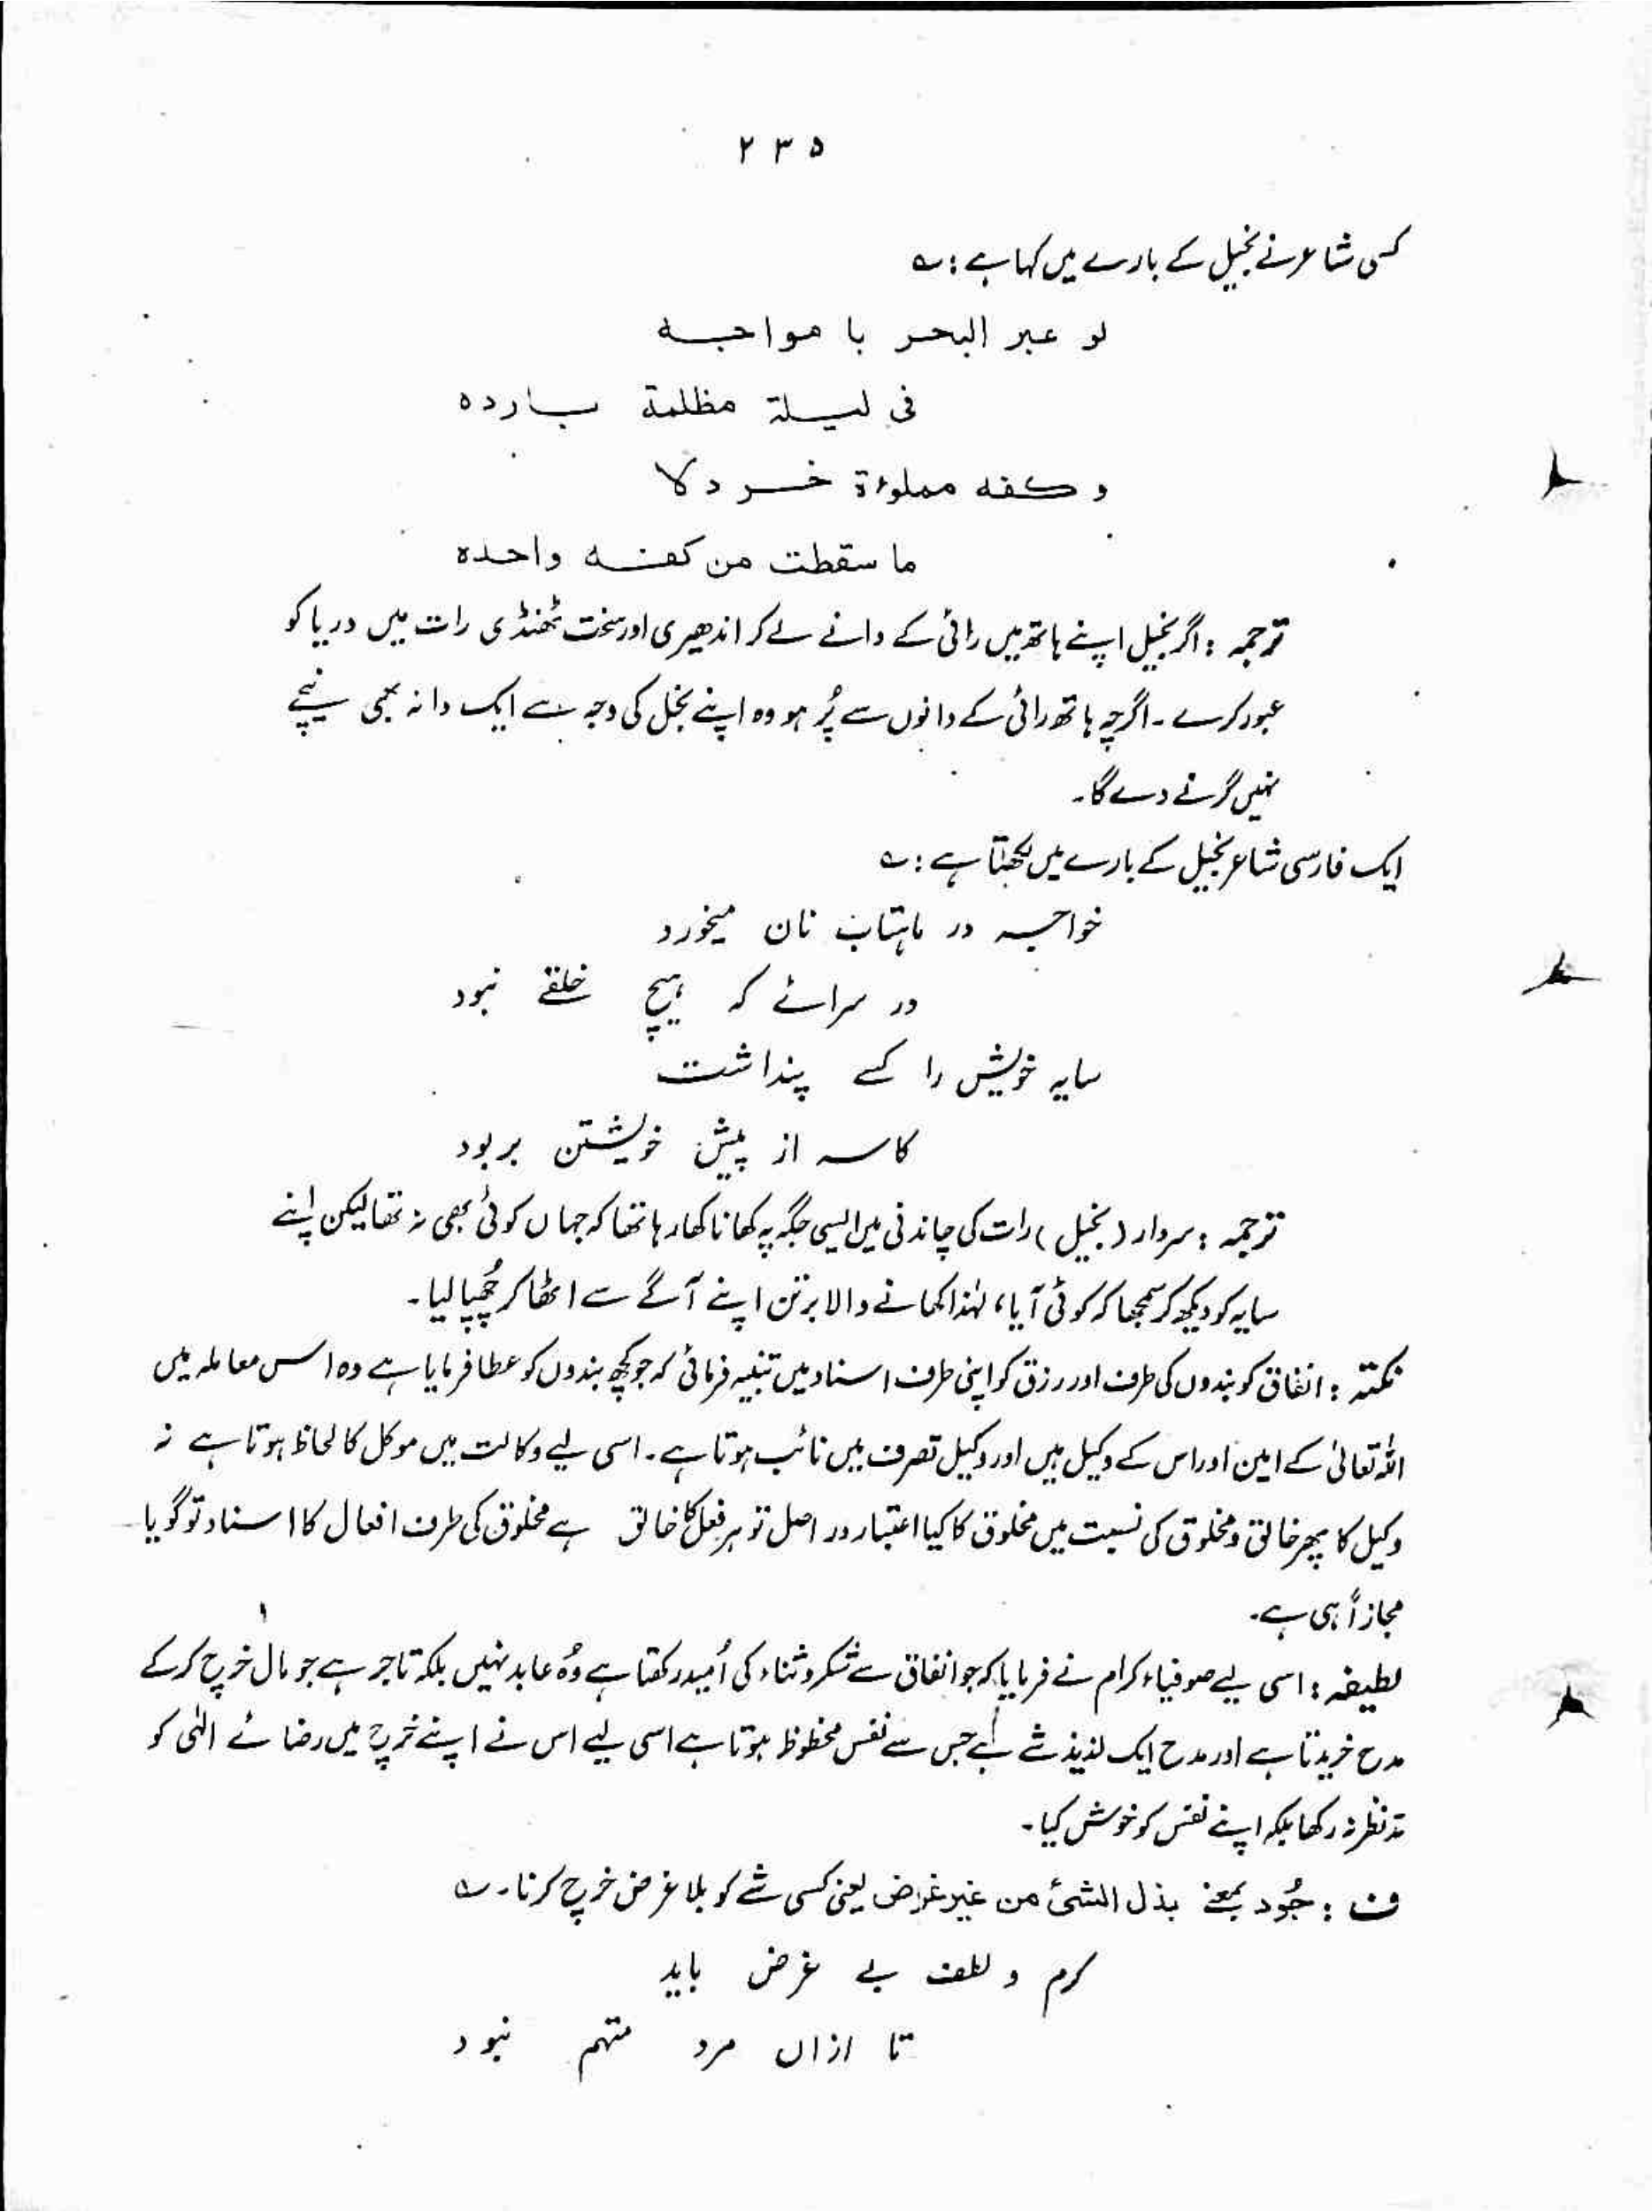 ۲۳۵
کسی شاعر نے بخیل کے بارے میں کہا ہے : ؎
لو عبر البحر با مواجہ
فی لیلۃ مظلمۃ باردہ
و کفہ مملوءۃ خردلا
ما سقطت من کفہ واحدہ
ترجمہ : اگر بخیل اپنے ہاتھ میں رائی کے دانے لے کر اندھیری اور سخت ٹھنڈی رات میں دریا کو
عبور کرے ۔ اگرچہ ہاتھ رائی کے دانوں سے پُر ہو وہ اپنے بخل کی وجہ سے ایک دانہ بھی نیچے
نہیں گرنے دے گا۔
ایک فارسی شاعر بخیل کے بارے میں لکھتا ہے : ؎
خواجہ در ماہتاب نان میخورد
در سرائے کہ ہیچ خلقے نبود
سایہ خویش را کسے پنداشت
کاسہ از پیش خویشتن بربود
ترجمہ : سردار (بخیل) رات کی چاندنی میں ایسی جگہ پہ کھانا کھا رہا تھا کہ جہاں کوئی بھی نہ تھا لیکن اپنے
سایہ کو دیکھ کر سمجھا کہ کوئی آیا، لہٰذا کھانے والا برتن اپنے آگے سے اٹھا کر چُھپا لیا۔
نکتہ : انفاق کو بندوں کی طرف اور رزق کو اپنی طرف اسناد میں تنبیہ فرمائی کہ جو کچھ بندوں کو عطا فرمایا ہے وہ اس معاملہ میں
اللہ تعالیٰ کے امین اور اس کے وکیل ہیں اور وکیل تصرف میں نائب ہوتا ہے۔ اسی لیے وکالت میں موکل کا لحاظ ہوتا ہے نہ
وکیل کا پھر خالق و مخلوق کی نسبت میں مخلوق کا کیا اعتبار در اصل تو ہر فعل کا خالق ہے مخلوق کی طرف افعال کا اسناد تو گویا
مجازاً ہی ہے۔
لطیفہ : اسی لیے صوفیاء کرام نے فرمایا کہ جو انفاق سے شکر و ثناء کی اُمید رکھتا ہے وُہ عابد نہیں بلکہ تاجر ہے جو مال خرچ کر کے
مدح خریدتا ہے اور مدح ایک لذیذ شے ہے جس سے نفس محظوظ ہوتا ہے اسی لیے اس نے اپنے خرچ میں رضائے الٰہی کو
مدّنظر نہ رکھا بلکہ اپنے نفس کو خوش کیا۔
ف : جُود بمعنے بذل الشئ من غیر غرض یعنی کسی شے کو بلا غرض خرچ کرنا۔ ؎
کرم و لطف بے غرض باید
تا ازاں مرد متہم نبود